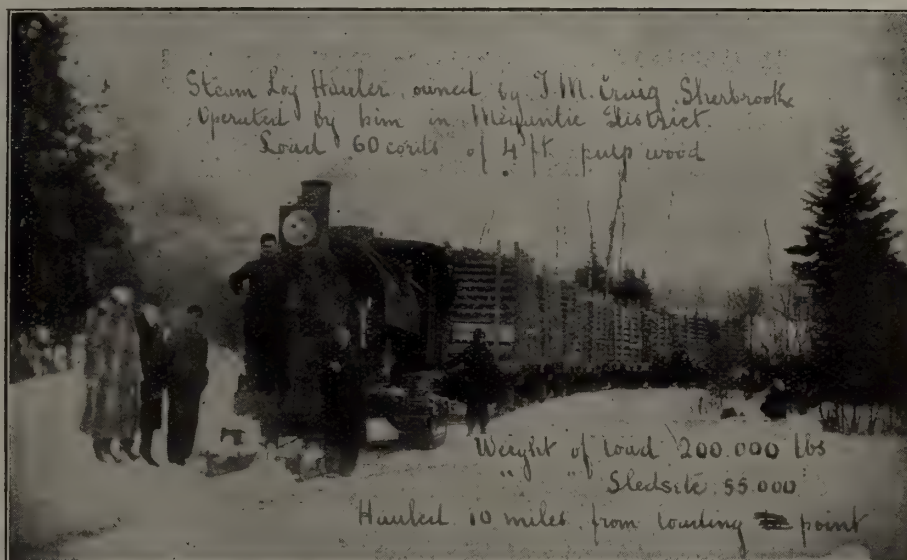 Steam Log Hauler, owned by J. M. Craig Sherbrooke
Operated by him in Megantic District.
Load 60 cords of 4 ft. pulp wood
Weight of load 200.000 lbs
" " Sleds etc 55.000
Hauled 10 miles from loading point